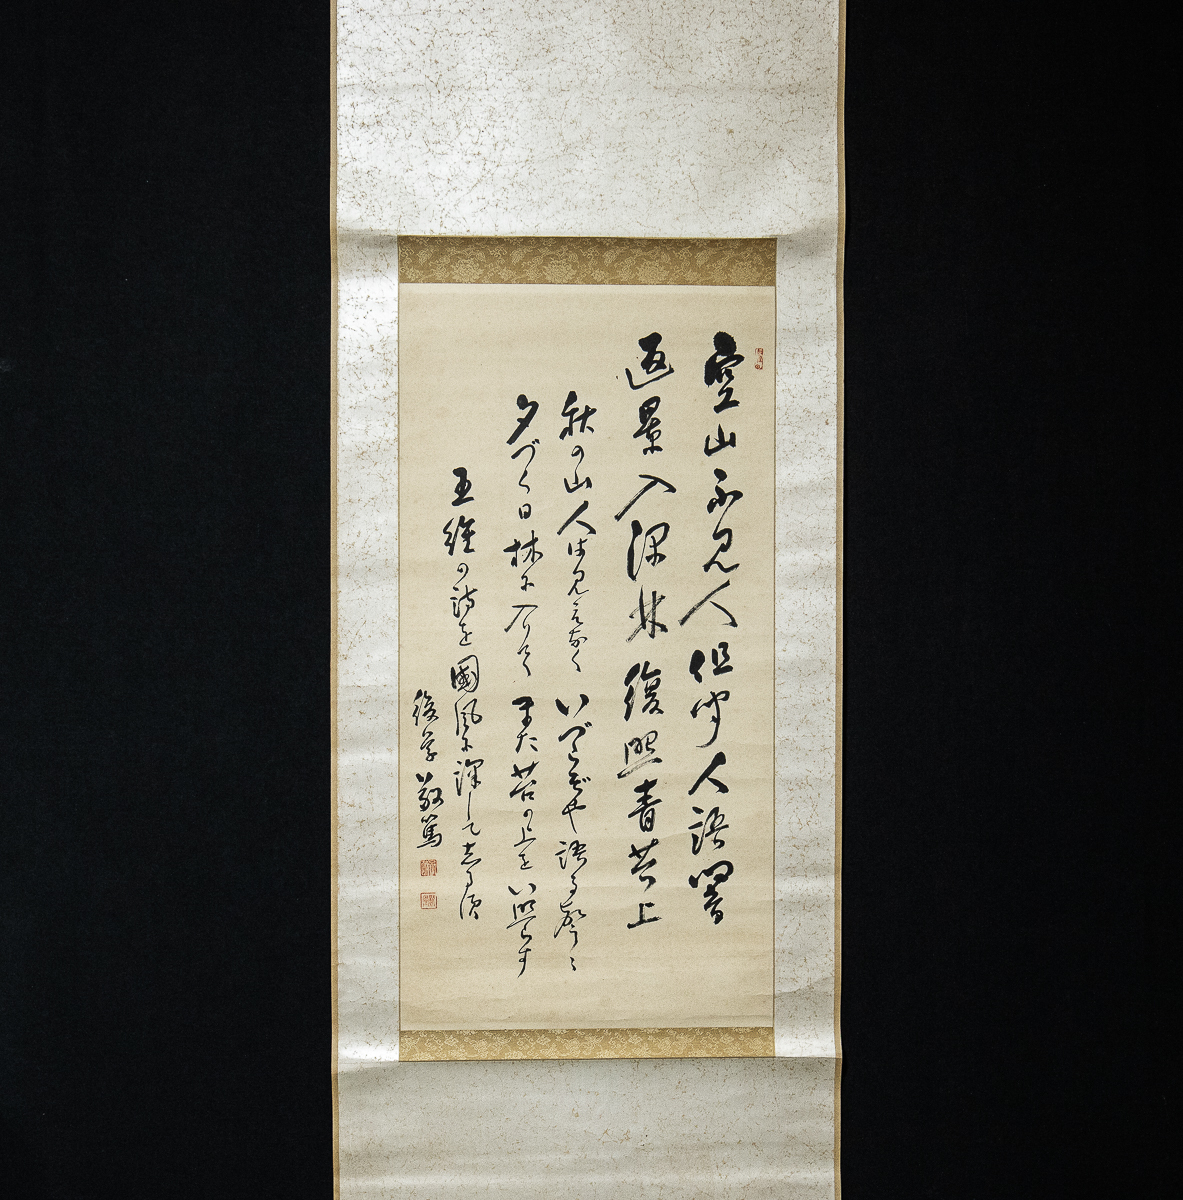 空山不見人但聞人語響
返景入深林復照青苔上
秋の山人は見えなくいづこぞや語る聲
夕づく日林に入りてまた苔の上をい照らす
王維の詩を國風に譯してしるす
後学 敬篤